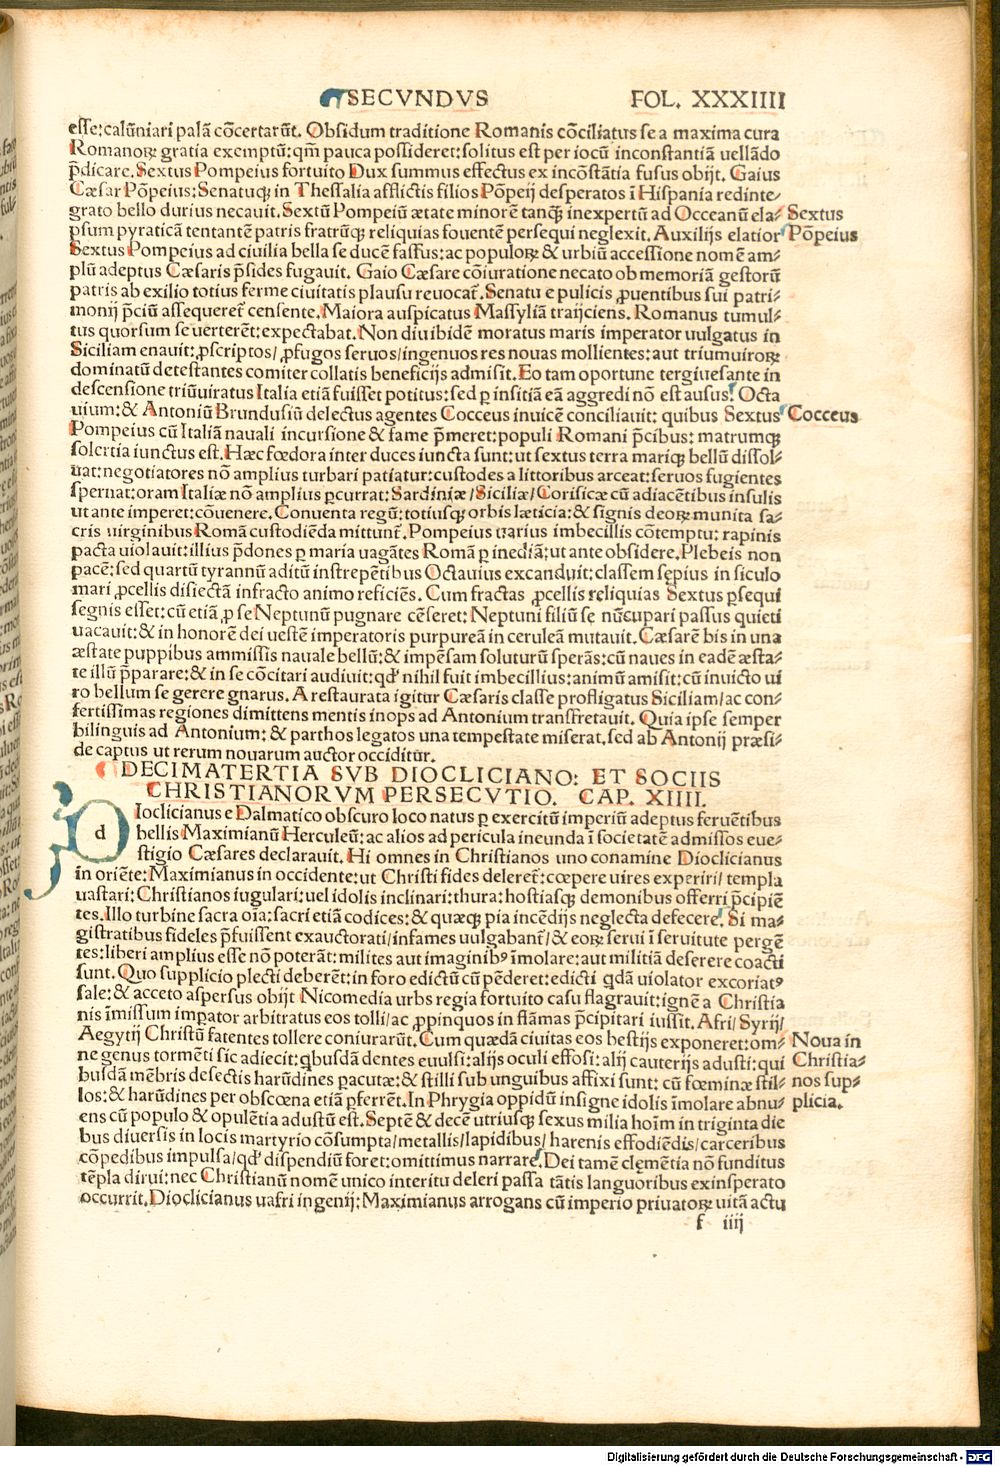 SECVNDVS FOL. XXXIIII
esse: calũniari palã cõcertarũt. Obsidum traditione Romanis cõciliatus se a maxima cura
Romanoꝝ gratia exemptũ: qm̃ pauca possideret: solitus est per iocũ inconstantiã uellãdo
p̃dicare. Sextus Pompeius fortuito Dux summus effectus ex incõstãtia fusus obijt. Gaius
Cæsar Põpeius: Senatuqꝫ in Thessalia afflictis filios Põpeij desperatos ĩ Hispania redinte⸗
grato bello durius necauit. Sextũ Pompeiũ ætate minorẽ tanqꝫ̃ inexpertũ ad Occeanũ ela⸗ Sextus
psum pyraticã tentantẽ patris fratrũqꝫ reliquias fouentẽ persequi neglexit. Auxilijs elatior Põpeius
Sextus Pompeius ad ciuilia bella se ducẽ fassus: ac populoꝝ & urbiũ accessione nomẽ am⸗
plũ adeptus Cæsaris p̃sides fugauit. Gaio Cæsare cõiuratione necato ob memoriã gestorũ
patris ab exilio totius ferme ciuitatis plausu reuocat̃. Senatu e pulicis ꝓuentibus sui patri⸗
monij p̃ciũ assequeret̃ censente. Maiora auspicatus Massyliã traijciens. Romanus tumul⸗
tus quorsum se uerterẽt: expectabat. Non diu ibidẽ moratus maris imperator uulgatus in
Siciliam enauit: ꝓscriptos/ ꝓfugos seruos/ ingenuos res nouas mollientes: aut triumuiroꝝ
dominatũ detestantes comiter collatis beneficijs admisit. Eo tam oportune tergiuesante in
descensione triũuiratus Italia etiã fuisset potitus: sed ꝑ insitiã eã aggredi nõ est ausus. Octa
uium: & Antoniũ Brundusiũ delectus agentes Cocceus inuicẽ conciliauit: quibus Sextus Cocceus
Pompeius cũ Italiã nauali incursione & fame p̃meret: populi Romani p̃cibus: matrumqꝫ
solertia iunctus est. Hæc fœdora inter duces iuncta sunt: ut sextus terra mariqꝫ bellũ dissol⸗
uat: negotiatores nõ amplius turbari patiatur: custodes a littoribus arceat: seruos fugientes
spernat: oram Italiæ nõ amplius ꝑcurrat: Sardiniæ/ Siciliæ/ Corisicæ cũ adiacẽtibus insulis
ut ante imperet: cõuenere. Conuenta regũ: totiusqꝫ orbis læticia: & signis deoꝝ munita sa⸗
cris uirginibus Romã custodiẽda mittunt̃. Pompeius uarius imbecillis cõtemptu: rapinis
pacta uiolauit: illius p̃dones ꝑ maria uagãtes Romã ꝑ inediã: ut ante obsidere. Plebeis non
pacẽ: sed quartũ tyrannũ aditũ instrepẽtibus Octauius excanduit: classem sępius in siculo
mari ꝓcellis disiectã infracto animo reficiẽs. Cum fractas ꝓcellis reliquias Sextus ꝑsequi
segnis esset: cũ etiã ꝓ se Neptunũ pugnare cẽseret: Neptuni filiũ se nũcupari passus quieti
uacauit: & in honorẽ dei uestẽ imperatoris purpureã in ceruleã mutauit. Cæsarẽ bis in una
æstate puppibus ammissis nauale bellũ: & impẽsam soluturũ sperãs: cũ naues in eadẽ æsta⸗
te illũ p̃parare: & in se cõcitari audiuit: qđ nihil fuit imbecillius: animũ amisit: cũ inuicto ui
ro bellum se gerere gnarus. A restaurata igitur Cæsaris classe profligatus Siciliam/ ac con⸗
fertissimas regiones dimittens mentis inops ad Antonium transfretauit. Quia ipse semper
bilinguis ad Antonium: & parthos legatos una tempestate miserat. sed ab Antonij præsi⸗
de captus ut rerum nouarum auctor occiditur.
DECIMATERTIA SVB DIOCLICIANO: ET SOCIIS
CHRISTIANORVM PERSECVTIO. CAP. XIIII.
d Ioclicianus e Dalmatico obscuro loco natus ꝑ exercitũ imperiũ adeptus feruẽtibus
bellis Maximianũ Herculeũ: ac alios ad pericula ineunda ĩ societatẽ admissos eue⸗
stigio Cæsares declarauit. Hi omnes in Christianos uno conamine Dioclicianus
in oriẽte: Maximianus in occidente: ut Christi fides deleret̃: cœpere uires experiri/ templa
uastari: Christianos iugulari: uel idolis inclinari: thura: hostiasqꝫ demonibus offerri p̃cipiẽ
tes. Illo turbine sacra oĩa: sacri etiã codices: & quæqꝫ pia incẽdijs neglecta defecere. Si ma⸗
gistratibus fideles p̃fuissent exauctorati/ infames uulgabant̃/ & eoꝝ serui ĩ seruitute pergẽ
tes: liberi amplius esse nõ poterãt: milites aut imaginibꝰ ĩmolare: aut militiã deserere coacti
sunt. Quo supplicio plecti deberẽt: in foro edictũ cũ pẽderet: edicti qdã uiolator excoriatꝰ
sale: & acceto aspersus obijt Nicomedia urbs regia fortuito casu flagrauit: ignẽ a Christia
nis ĩmissum impator arbitratus eos tolli/ ac ꝓpinquos in flãmas p̃cipitari iussit. Afri/ Syrij/
Aegytij Christũ fatentes tollere coniurarũt. Cum quædã ciuitas eos bestijs exponeret: om⸗ Noua in
ne genus tormẽti sic adiecit: qbusdã dentes euulsi: alijs oculi effosi: alij cauterijs adusti: qui Christia⸗
busdã mẽbris desectis harũdines ꝑacutæ: & stilli sub unguibus affixi sunt: cũ fœminæ stil⸗ nos sup⸗
los: & harũdines per obscœna etiã p̃ferrẽt. In Phrygia oppidũ insigne idolis ĩmolare abnu⸗ plicia.
ens cũ populo & opulẽtia adustũ est. Septẽ & decẽ utriusqꝫ sexus milia hoĩm in triginta die
bus diuersis in locis martyrio cõsumpta/ metallis/ lapidibus/ harenis effodiẽdis/ carceribus
cõpedibus impulsa/ qđ dispendiũ foret: omittimus narrare. Dei tamẽ clęmẽtia nõ funditus
tẽpla dirui: nec Christianũ nomẽ unico interitu deleri passa tãtis languoribus exinsperato
occurrit. Dioclicianus uafri ingenij: Maximianus arrogans cũ imperio priuatoꝝ uitã actu
f iiij
Digitalisierung gefördert durch die Deutsche Forschungsgemeinschaft - DFG